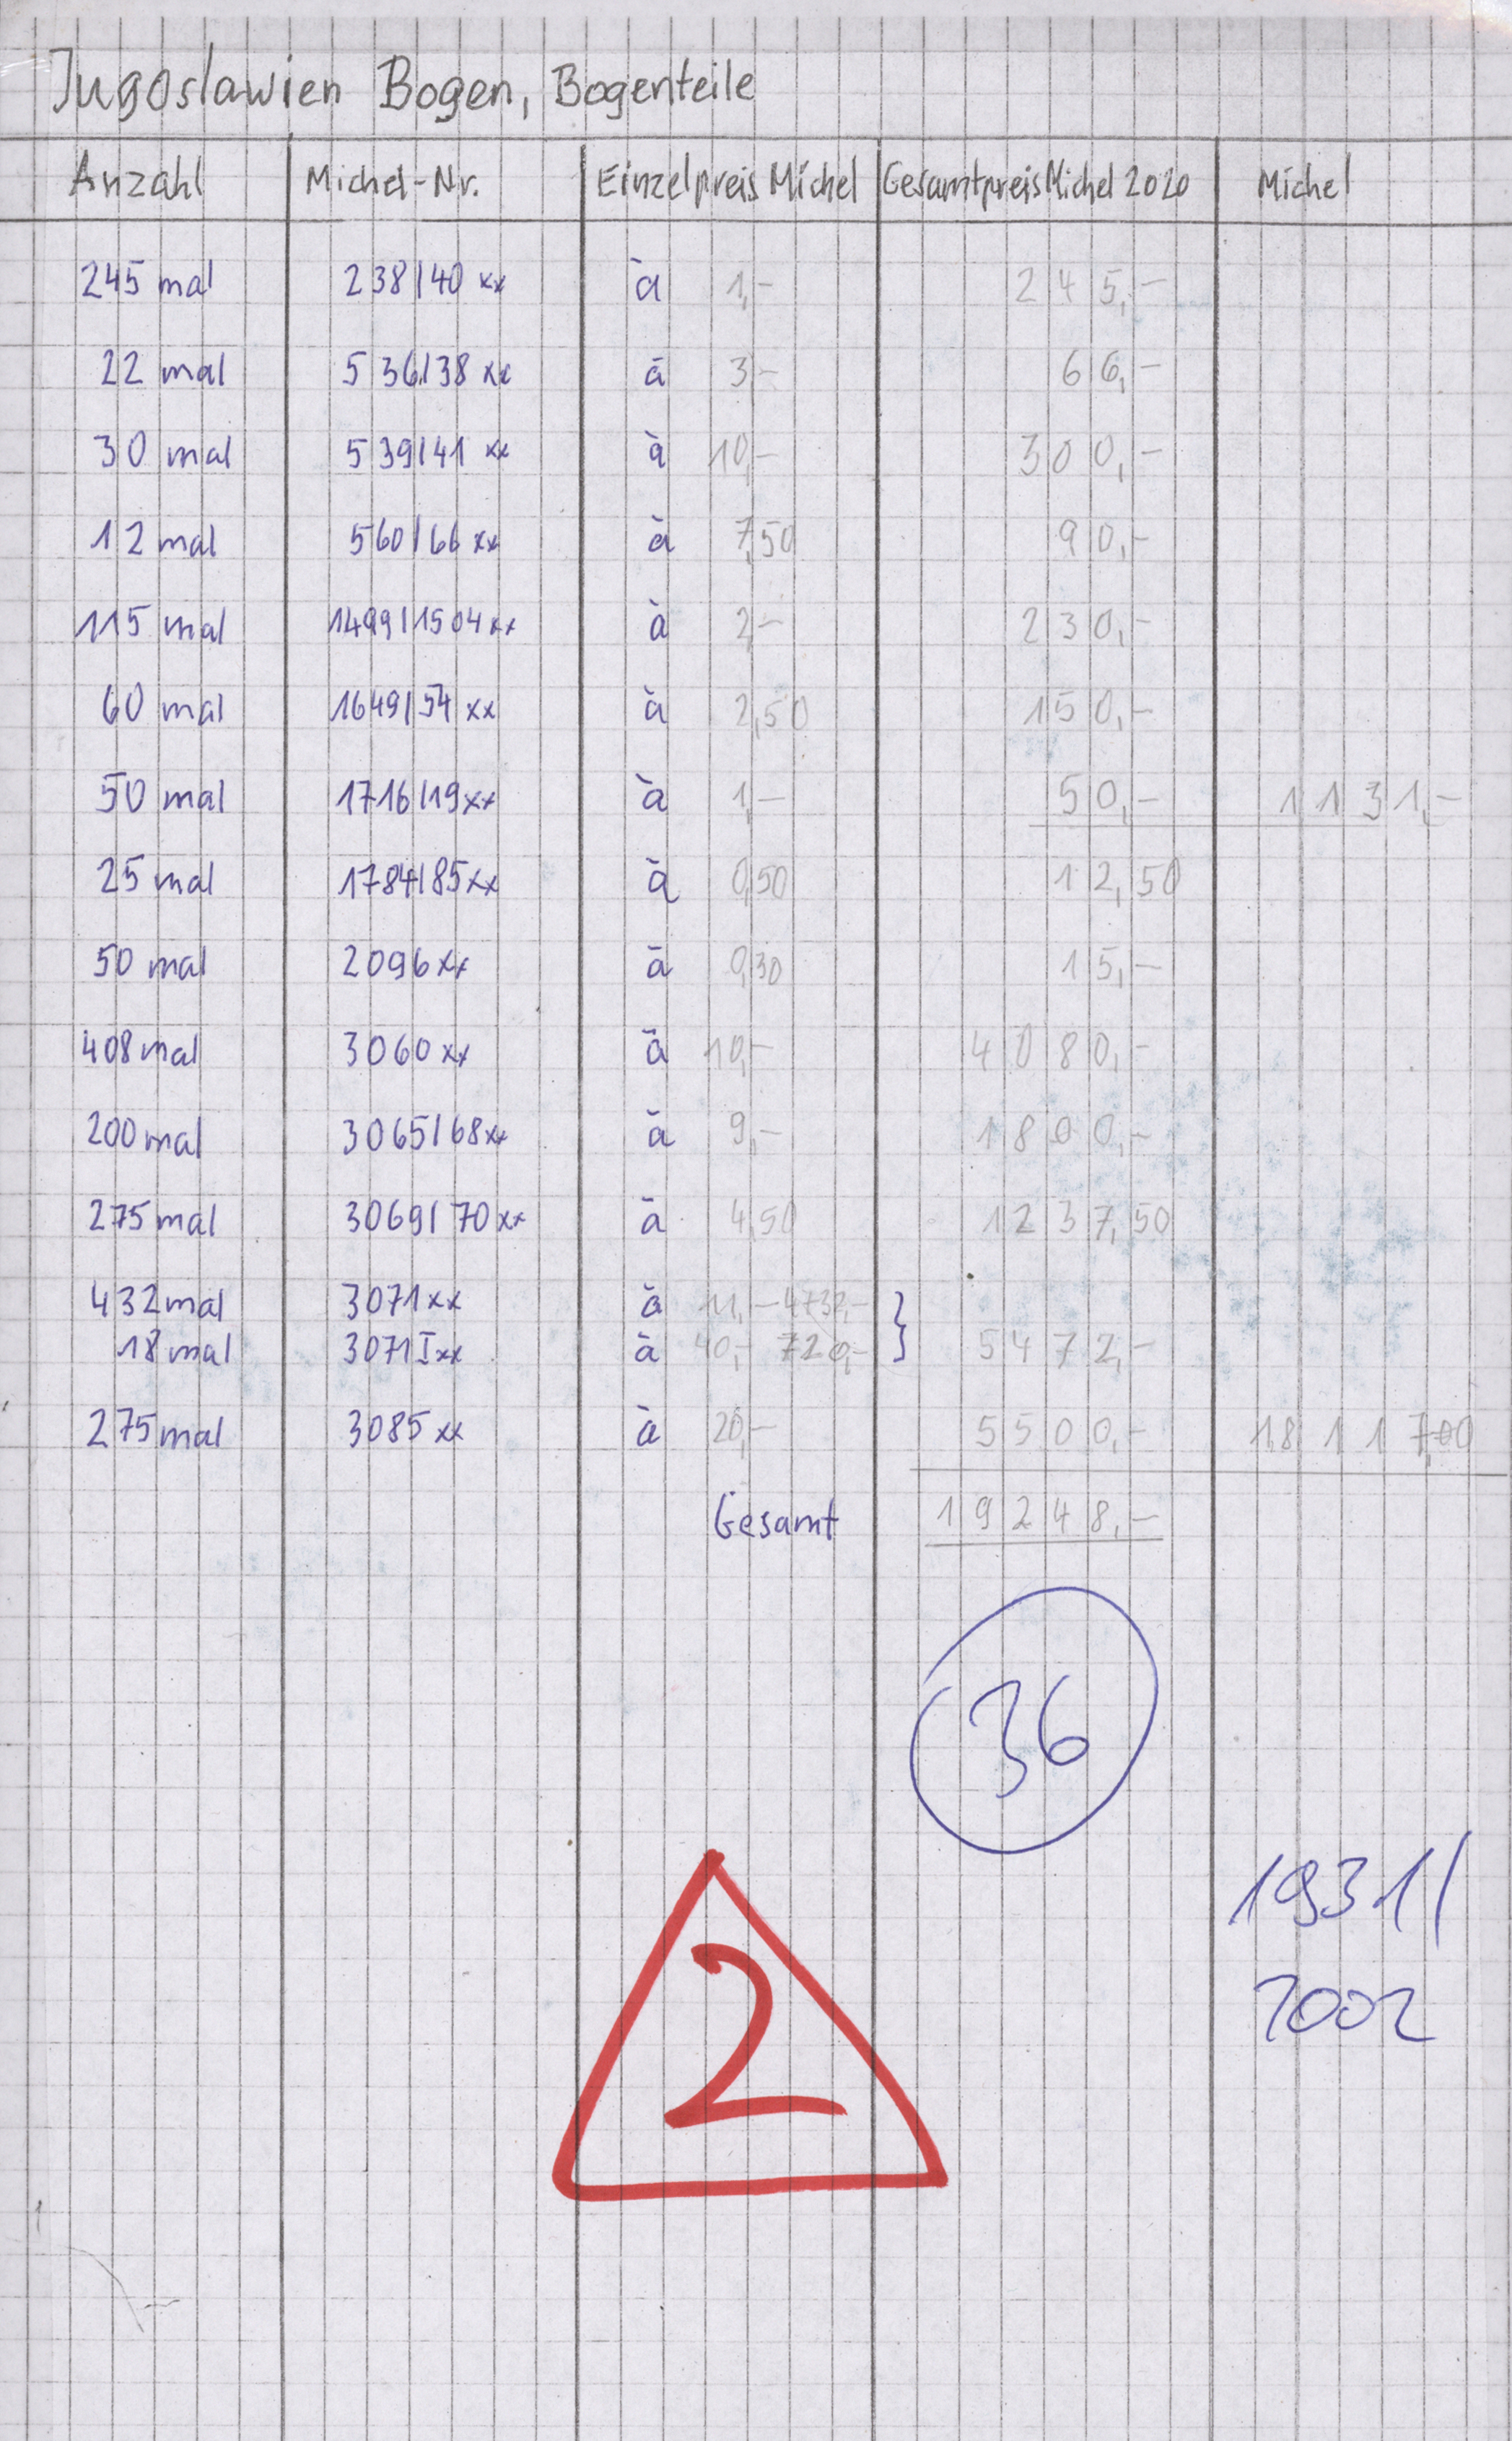 Jugoslawien Bogen, Bogenteile
Anzahl Michel-Nr. Einzelpreis Michel Gesamtpreis Michel 2020 Michel
245 mal 238/40 xx à 1,- 245,-
22 mal 536/38 xx à 3,- 66,-
30 mal 539/41 xx à 10,- 300,-
12 mal 560/66 xx à 7,50 90,-
115 mal 1499/1504 xx à 2,- 230,-
60 mal 1649/54 xx à 2,50 150,-
50 mal 1716/19 xx à 1,- 50,- 1131,-
25 mal 1784/85 xx à 0,50 12,50
50 mal 2096 xx à 0,30 15,-
408 mal 3060 xx à 10,- 4080,-
200 mal 3065/68 xx à 9,- 1800,-
275 mal 3069/70 xx à 4,50 1237,50
432 mal 3071 xx à 11,- 4732,- }
18 mal 3071 I xx à 40,- 720,- } 5472,-
275 mal 3085 xx à 20,- 5500,- 18117,00
Gesamt 19248,-
36
1931/
2002
2